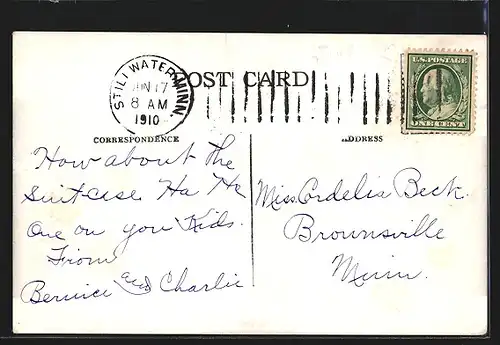 STILLWATER, MINN.
JUN 17
8 AM
1910
POST CARD
U.S. POSTAGE
ONE CENT
CORRESPONDENCE
ADDRESS
How about the
Suitcase Ha He
One on you Kids.
From
Bernice and Charlie
Miss Cordelia Beck
Brownsville
Minn.